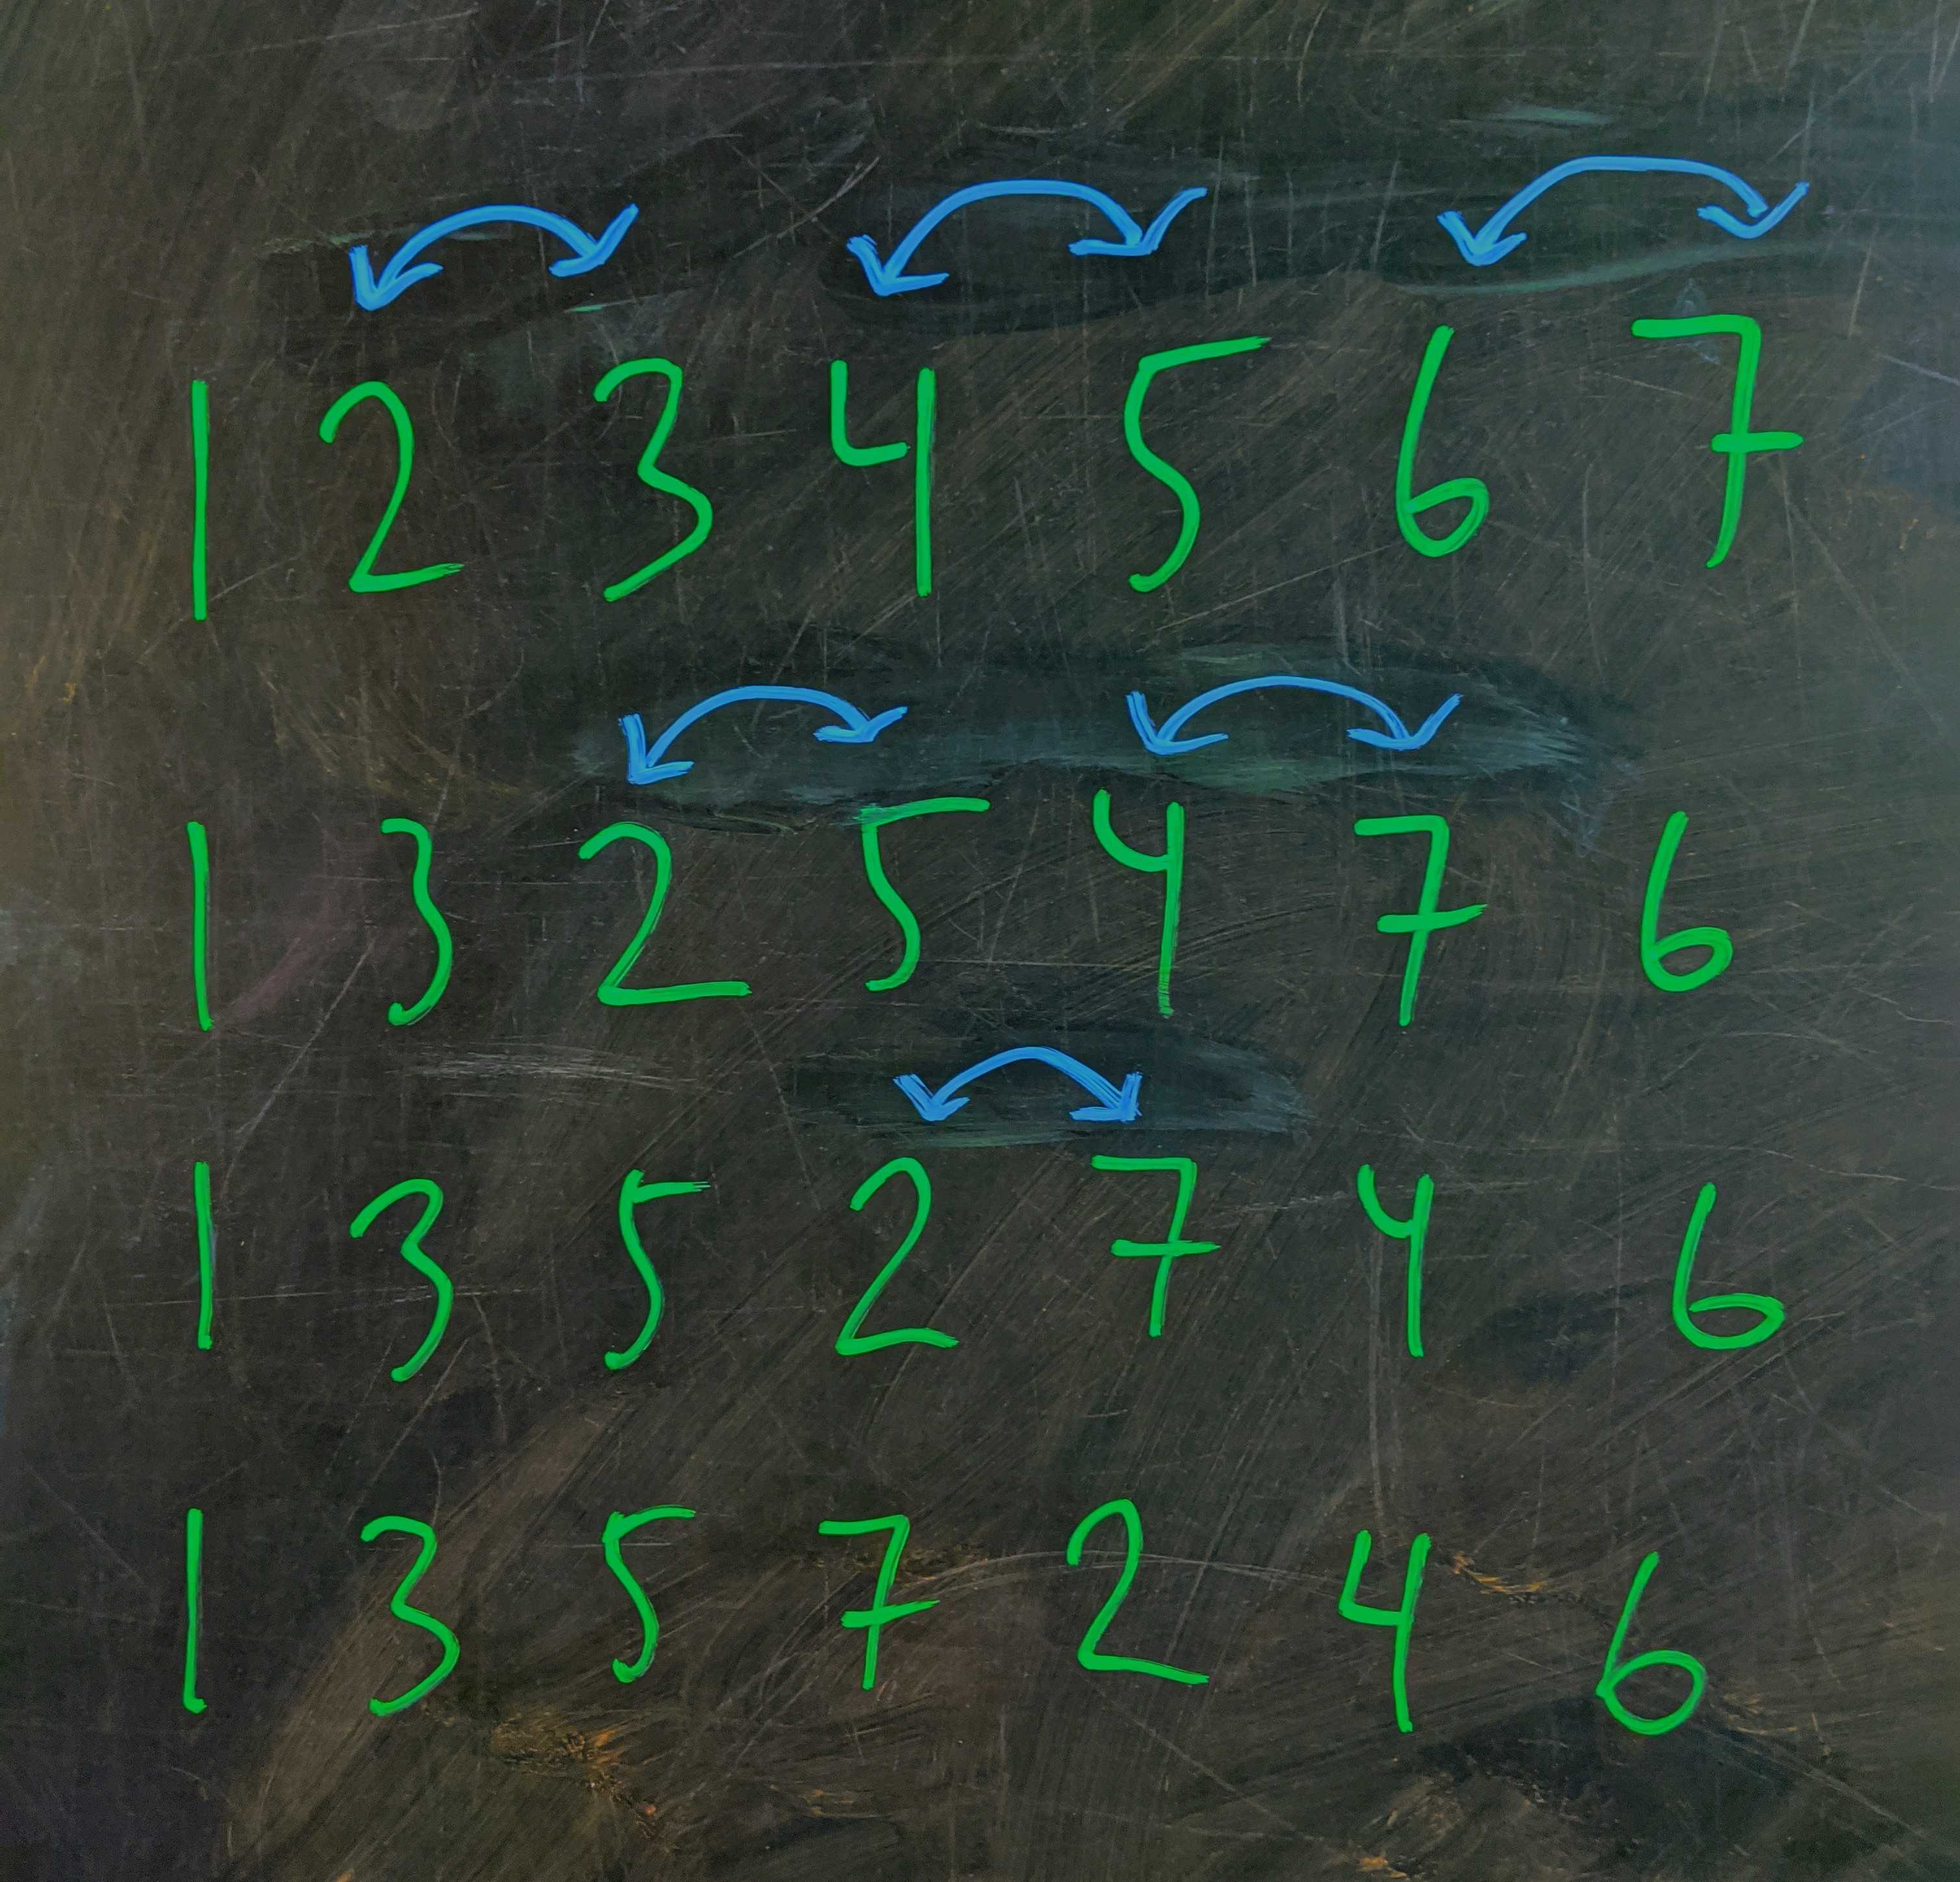 1 2 3 4 5 6 7
1 3 2 5 4 7 6
1 3 5 2 7 4 6
1 3 5 7 2 4 6